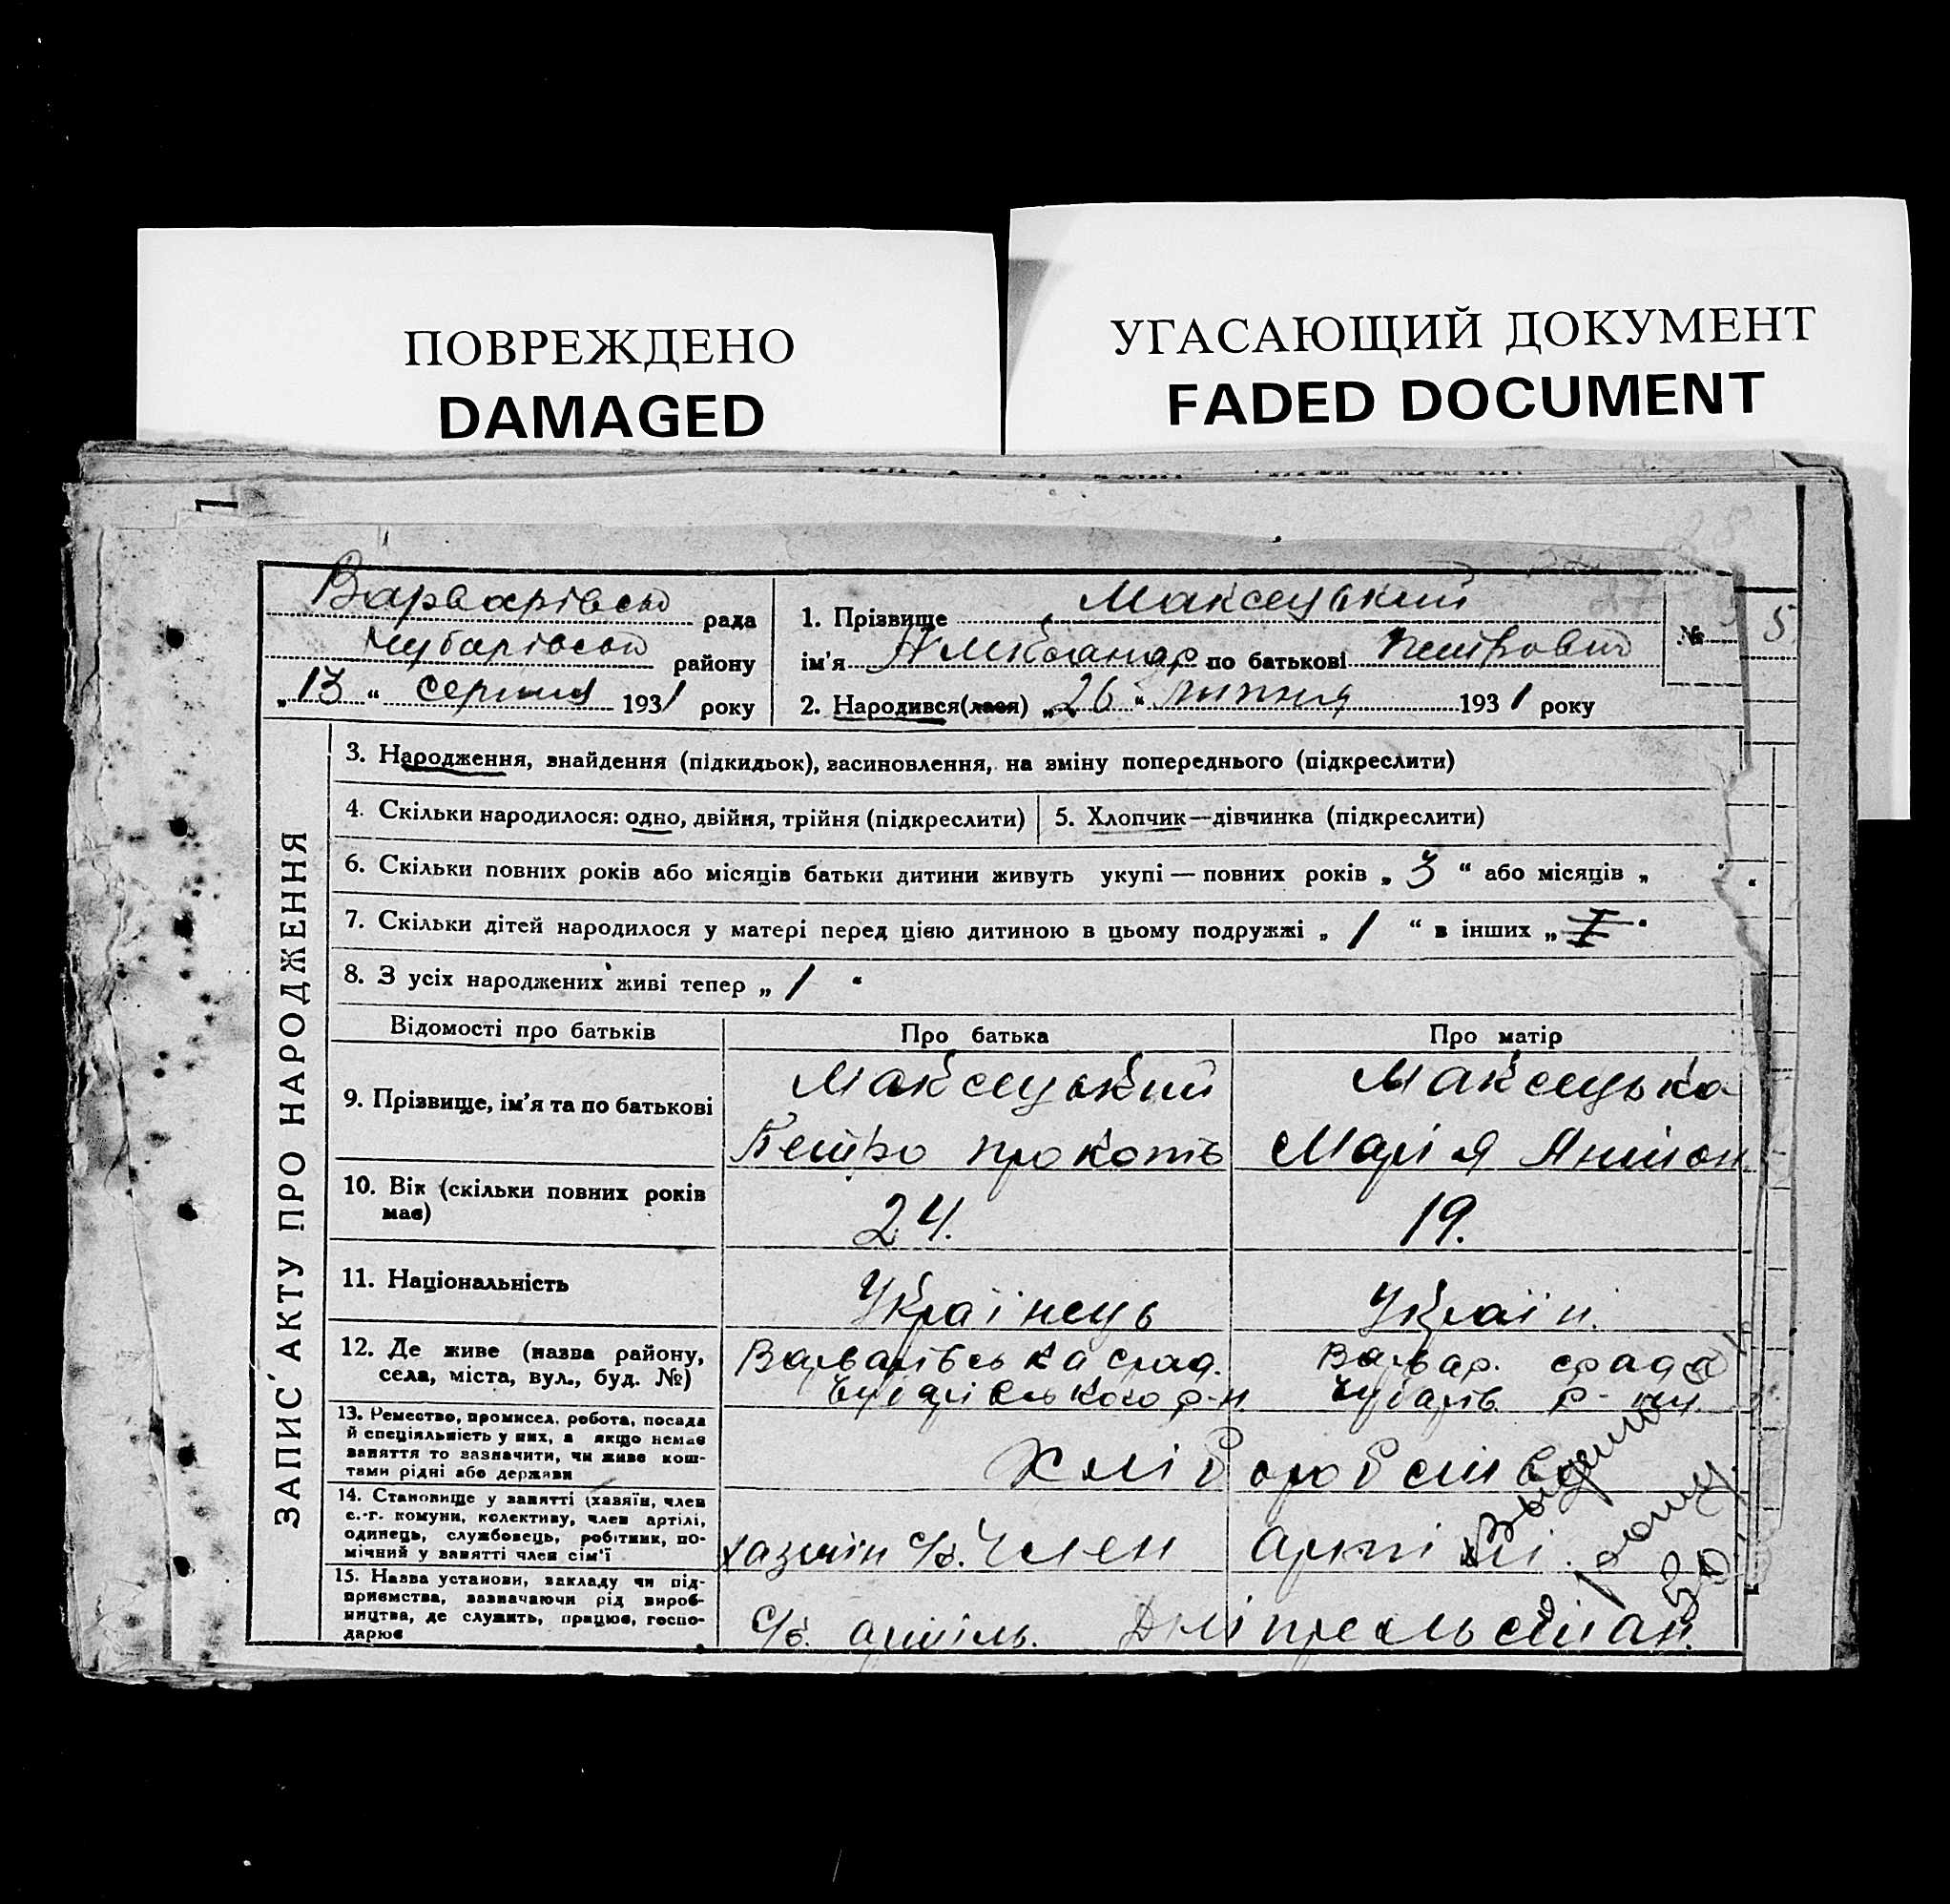 ПОВРЕЖДЕНО
DAMAGED
УГАСАЮЩИЙ ДОКУМЕНТ
FADED DOCUMENT
Варварівсько рада
Чубарівсько району
„13“ серпня 1931 року
1. Прізвище Максецький
ім'я Александр по батькові Петрович
№ 5
2. Народився(лася) „26“ липня 1931 року
ЗАПИС АКТУ ПРО НАРОДЖЕННЯ
3. Народження, знайдення (підкидьок), засиновлення, на зміну попереднього (підкреслити)
4. Скільки народилося: одно, двійня, трійня (підкреслити)
5. Хлопчик—дівчинка (підкреслити)
6. Скільки повних років або місяців батьки дитини живуть укупі — повних років „3“ або місяців „
7. Скільки дітей народилося у матері перед цією дитиною в цьому подружжі „1“ в інших „I“
8. З усіх народжених живі тепер „1“
Відомості про батьків Про батька Про матір
9. Прізвище, ім'я та по батькові
Максецький
Петро прокоть
Максецька
Марія Антон
10. Вік (скільки повних років має)
24.
19.
11. Національність
Українець
Україн.
12. Де живе (назва району,
села, міста, вул., буд. №)
Варварівська срад.
Чубарівського р-н
Варвар. срада
Чубарів. р-ну.
13. Ремество, промисел, робота, посада
й спеціяльність у них, а якщо немає
заняття то зазначити, чи живе кош-
тами рідні або держави
Хліборобство
14. Становище у занятті (хазяїн, член
с.-г. комуни, колективу, член артілі,
одинець, службовець, робітник, по-
мічний у занятті член сім'ї
хазяїн с/г. Член артілі.
15. Назва установи, закладу чи під-
приємства, зазначаючи рід вироб-
ництва, де служить, працює, госпо-
дарює
С/г. артіль.